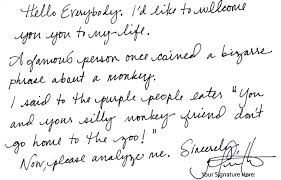 Hello Everybody. I'd like to wellcome
you you to my-life.
A famous person once coined a bizarre
phrase about a monkey.
I said to the purple people eater "You
and your silly monkey friend don't
go home to the zoo!"
Now, please analyze me. Sincerely,
Your Signature Here: